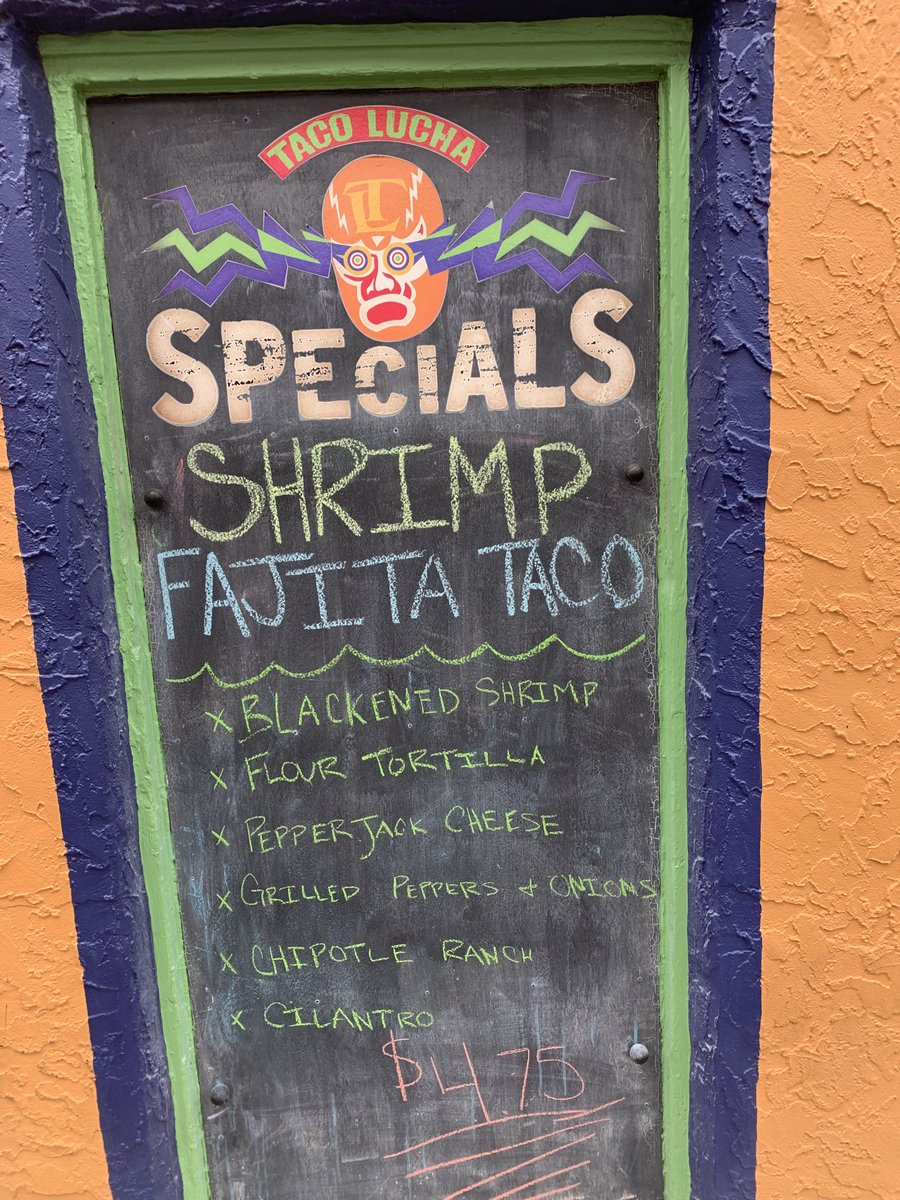 TACO LUCHA
LT
SPECIALS
SHRIMP
FAJITA TACO
x BLACKENED SHRIMP
x FLOUR TORTILLA
x PEPPERJACK CHEESE
x GRILLED PEPPERS & ONIONS
x CHIPOTLE RANCH
x CILANTRO
$4.75